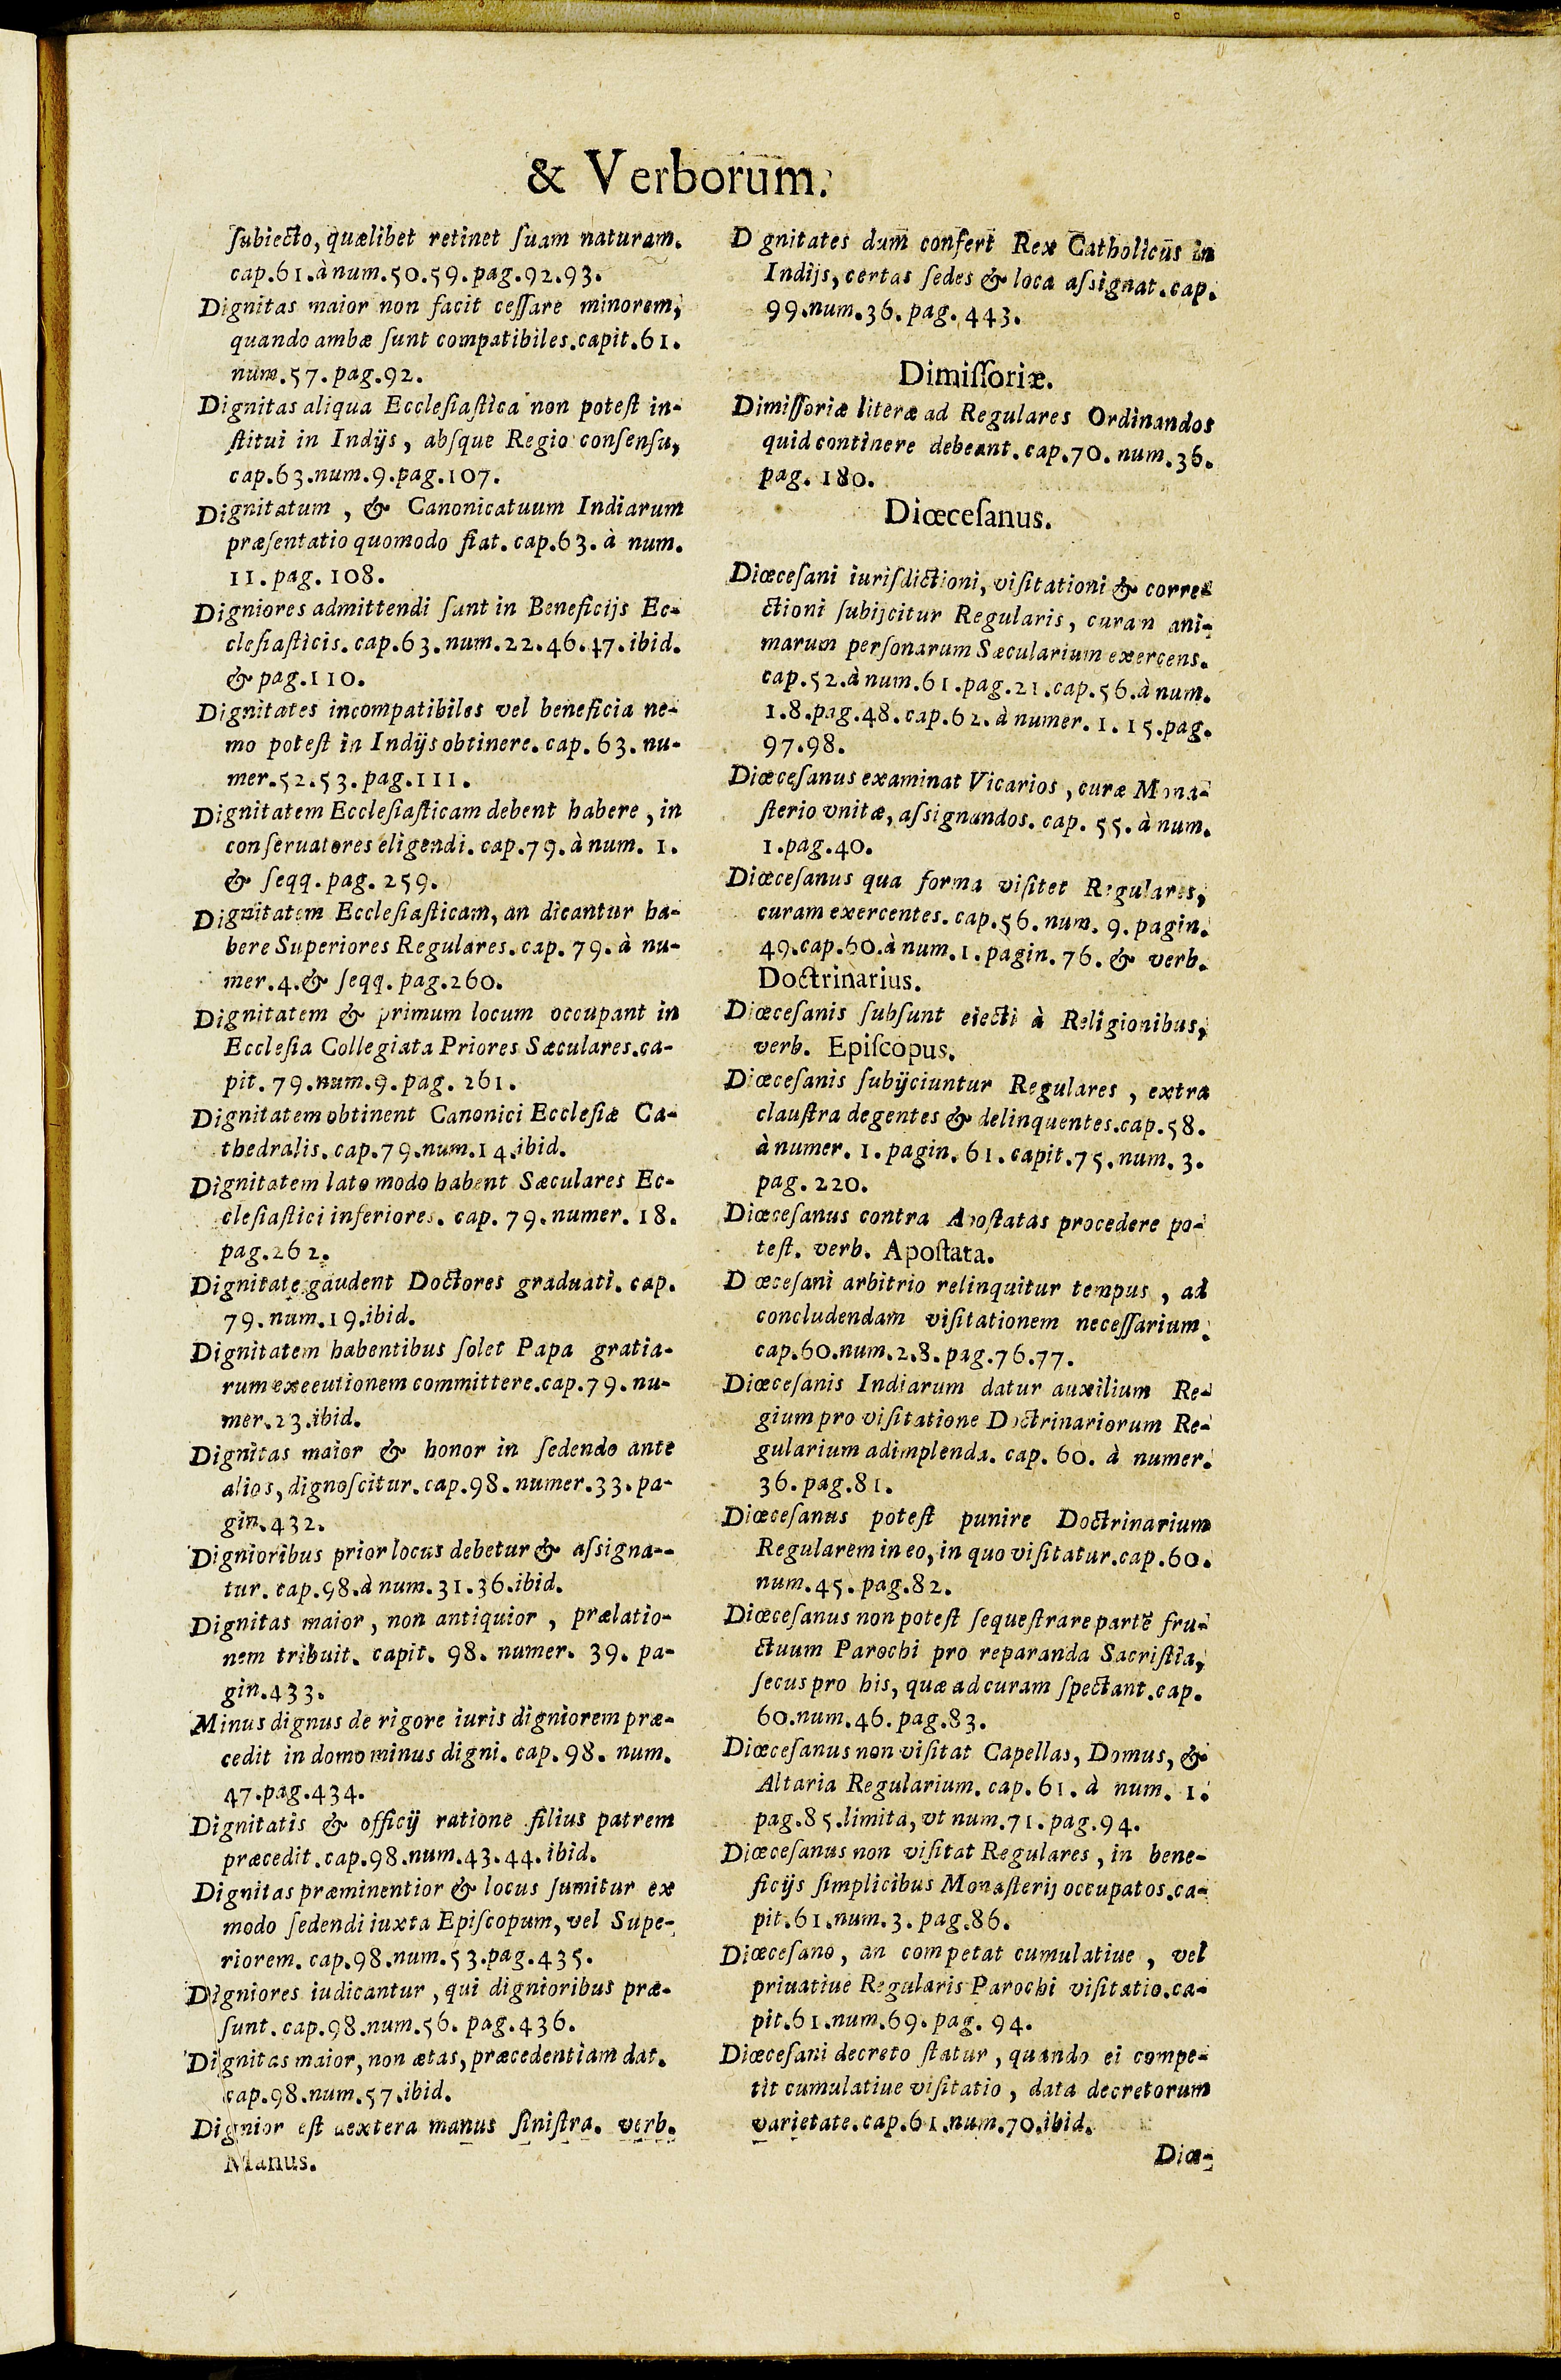 & Verborum.
ſubiecto, quælibet retinet ſuam naturam.
cap.61.à num.50.59.pag.92.93.
Dignitas maior non facit ceſſare minorem,
quando ambæ ſunt compatibiles.capit.61.
num.57.pag.92.
Dignitas aliqua Eccleſiaſtica non poteſt in-
ſtitui in Indijs, abſque Regio conſenſu,
cap.63.num.9.pag.107.
Dignitatum, & Canonicatuum Indiarum
præſentatio quomodo fiat. cap.63. à num.
11. pag. 108.
Digniores admittendi ſunt in Beneficijs Ec-
cleſiaſticis. cap.63. num.22.46.47.ibid.
& pag.110.
Dignitates incompatibiles vel beneficia ne-
mo poteſt in Indijs obtinere. cap. 63. nu-
mer.52.53. pag.111.
Dignitatem Eccleſiaſticam debent habere, in
conſeruatores eligendi. cap.79. à num. 1.
& ſeqq. pag. 259.
Dignitatem Eccleſiaſticam, an dicantur ha-
bere Superiores Regulares. cap. 79. à nu-
mer.4.& ſeqq. pag.260.
Dignitatem & primum locum occupant in
Eccleſia Collegiata Priores Sæculares.ca-
pit. 79.num.9. pag. 261.
Dignitatem obtinent Canonici Eccleſiæ Ca-
thedralis. cap.79.num.14.ibid.
Dignitatem lato modo habent Sæculares Ec-
cleſiaſtici inferiores. cap. 79. numer. 18.
pag.262.
Dignitate gaudent Doctores graduati. cap.
79. num.19.ibid.
Dignitatem habentibus ſolet Papa gratia-
rum exeeutionem committere.cap.79. nu-
mer.23.ibid.
Dignitas maior & honor in ſedendo ante
alios, dignoſcitur. cap.98. numer.33. pa-
gin.432.
Dignioribus prior locus debetur & aſsigna--
tur. cap.98.à num.31.36.ibid.
Dignitas maior, non antiquior, prælatio-
nem tribuit. capit. 98. numer. 39. pa-
gin.433.
Minus dignus de rigore iuris digniorem præ-
cedit in domo minus digni. cap.98. num.
47.pag.434.
Dignitatis & officij ratione filius patrem
præcedit.cap.98.num.43.44. ibid.
Dignitas præminentior & locus ſumitur ex
modo ſedendi iuxta Epiſcopum, vel Supe-
riorem. cap.98.num.53.pag.435.
Digniores iudicantur, qui dignioribus præ-
ſunt. cap.98.num.56. pag.436.
Dignitas maior, non ætas, præcedentiam dat.
cap.98.num.57.ibid.
Dignior eſt dextera manus ſiniſtra. verb.
Manus.
D gnitates dum confert Rex Catholicus in
Indijs, certas ſedes & loca aſsignat.cap.
99.num.36. pag. 443.
Dimiſſoriæ.
Dimiſſoriæ literæ ad Regulares Ordinandos
quid continere debeant. cap.70. num.36.
pag. 180.
Diœceſanus.
Diœceſani iuriſdictioni, viſitationi & corre-
ctioni ſubijcitur Regularis, curan ani-
marum perſonarum Sæcularium exercens.
cap.52.à num.61.pag.21.cap.56.à num.
1.8.pag.48.cap.62. à numer. 1. 15.pag.
97.98.
Diœceſanus examinat Vicarios, curæ Mona-
ſterio vnitæ, aſsignandos. cap. 55. à num.
1.pag.40.
Diœceſanus qua forma viſitet Regulares,
curam exercentes. cap.56. num. 9. pagin.
49.cap.60.à num.1. pagin. 76. & verb.
Doctrinarius.
Diœceſanis ſubſunt eiecti à Religionibus,
verb. Epiſcopus.
Diœceſanis ſubijciuntur Regulares, extra
clauſtra degentes & delinquentes.cap.58.
à numer. 1. pagin. 61. capit.75. num. 3.
pag. 220.
Diœceſanus contra Apoſtatas procedere po-
teſt. verb. Apoſtata.
D œceſani arbitrio relinquitur tempus, ad
concludendam viſitationem neceſſarium.
cap.60.num.2.8. pag.76.77.
Diœceſanis Indiarum datur auxilium Re-
gium pro viſitatione Doctrinariorum Re-
gularium adimplenda. cap. 60. à numer.
36. pag.81.
Diœceſanus poteſt punire Doctrinarium
Regularem in eo, in quo viſitatur.cap.60.
num.45. pag.82.
Diœceſanus non poteſt ſequeſtrare partē fru-
ctuum Parochi pro reparanda Sacriſtia,
ſecus pro his, quæ ad curam ſpectant.cap.
60.num.46. pag.83.
Diœceſanus non viſitat Capellas, Domus, &
Altaria Regularium. cap.61. à num. 1.
pag.85.limita, vt num.71. pag.94.
Diœceſanus non viſitat Regulares, in bene-
ficijs ſimplicibus Monaſterij occupatos.ca-
pit.61.num.3. pag.86.
Diœceſano, an competat cumulatiue, vel
priuatiuè Regularis Parochi viſitatio.ca-
pit.61.num.69. pag. 94.
Diœceſani decreto ſtatur, quando ei compe-
tit cumulatiue viſitatio, data decretorum
varietate.cap.61.num.70.ibid.
Diœ-